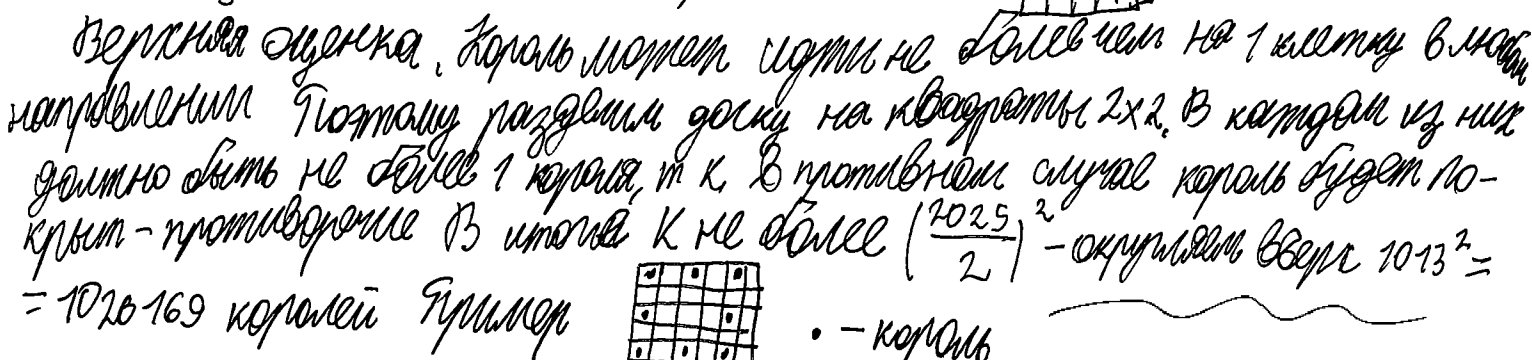 Верхняя оценка. Король может идти не более чем на 1 клетку в любом
направлении Поэтому разделим доску на квадраты 2x2. В каждом из них
должно быть не более 1 короля, т к. в противном случае король будет по-
крыт - противоречие В итоге K не более (2025/2)² - округляем вверх 1013² =
= 1026169 королей Пример • - король